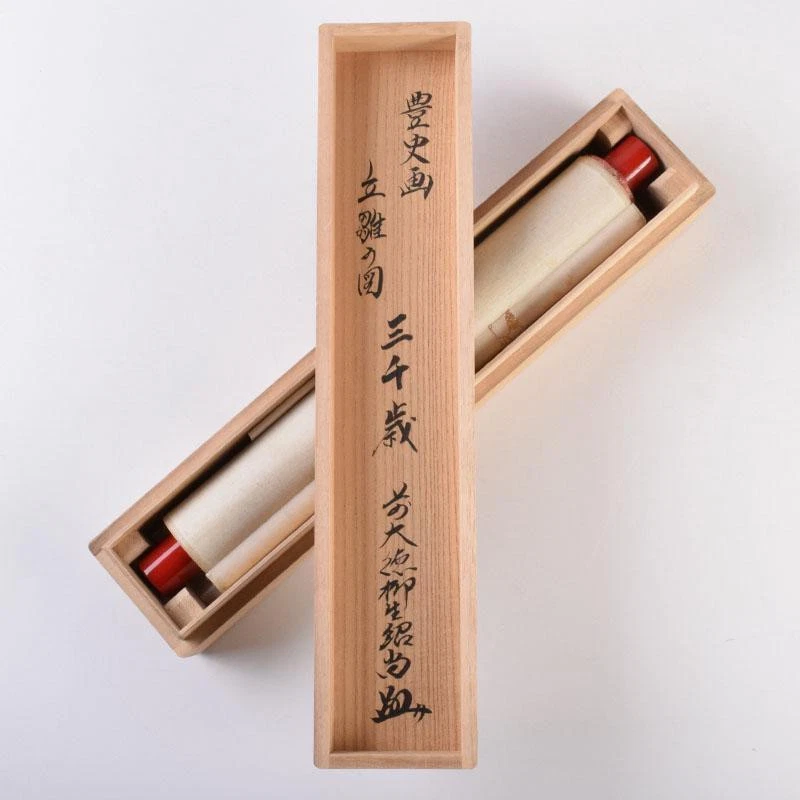 豊史画
立雛の図
三千歳
前大徳柳生紹尚